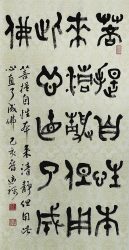 菩提自性本
來清靜但用
此心直了成
佛
菩提自性本来清静但用此
心直了成佛 己亥